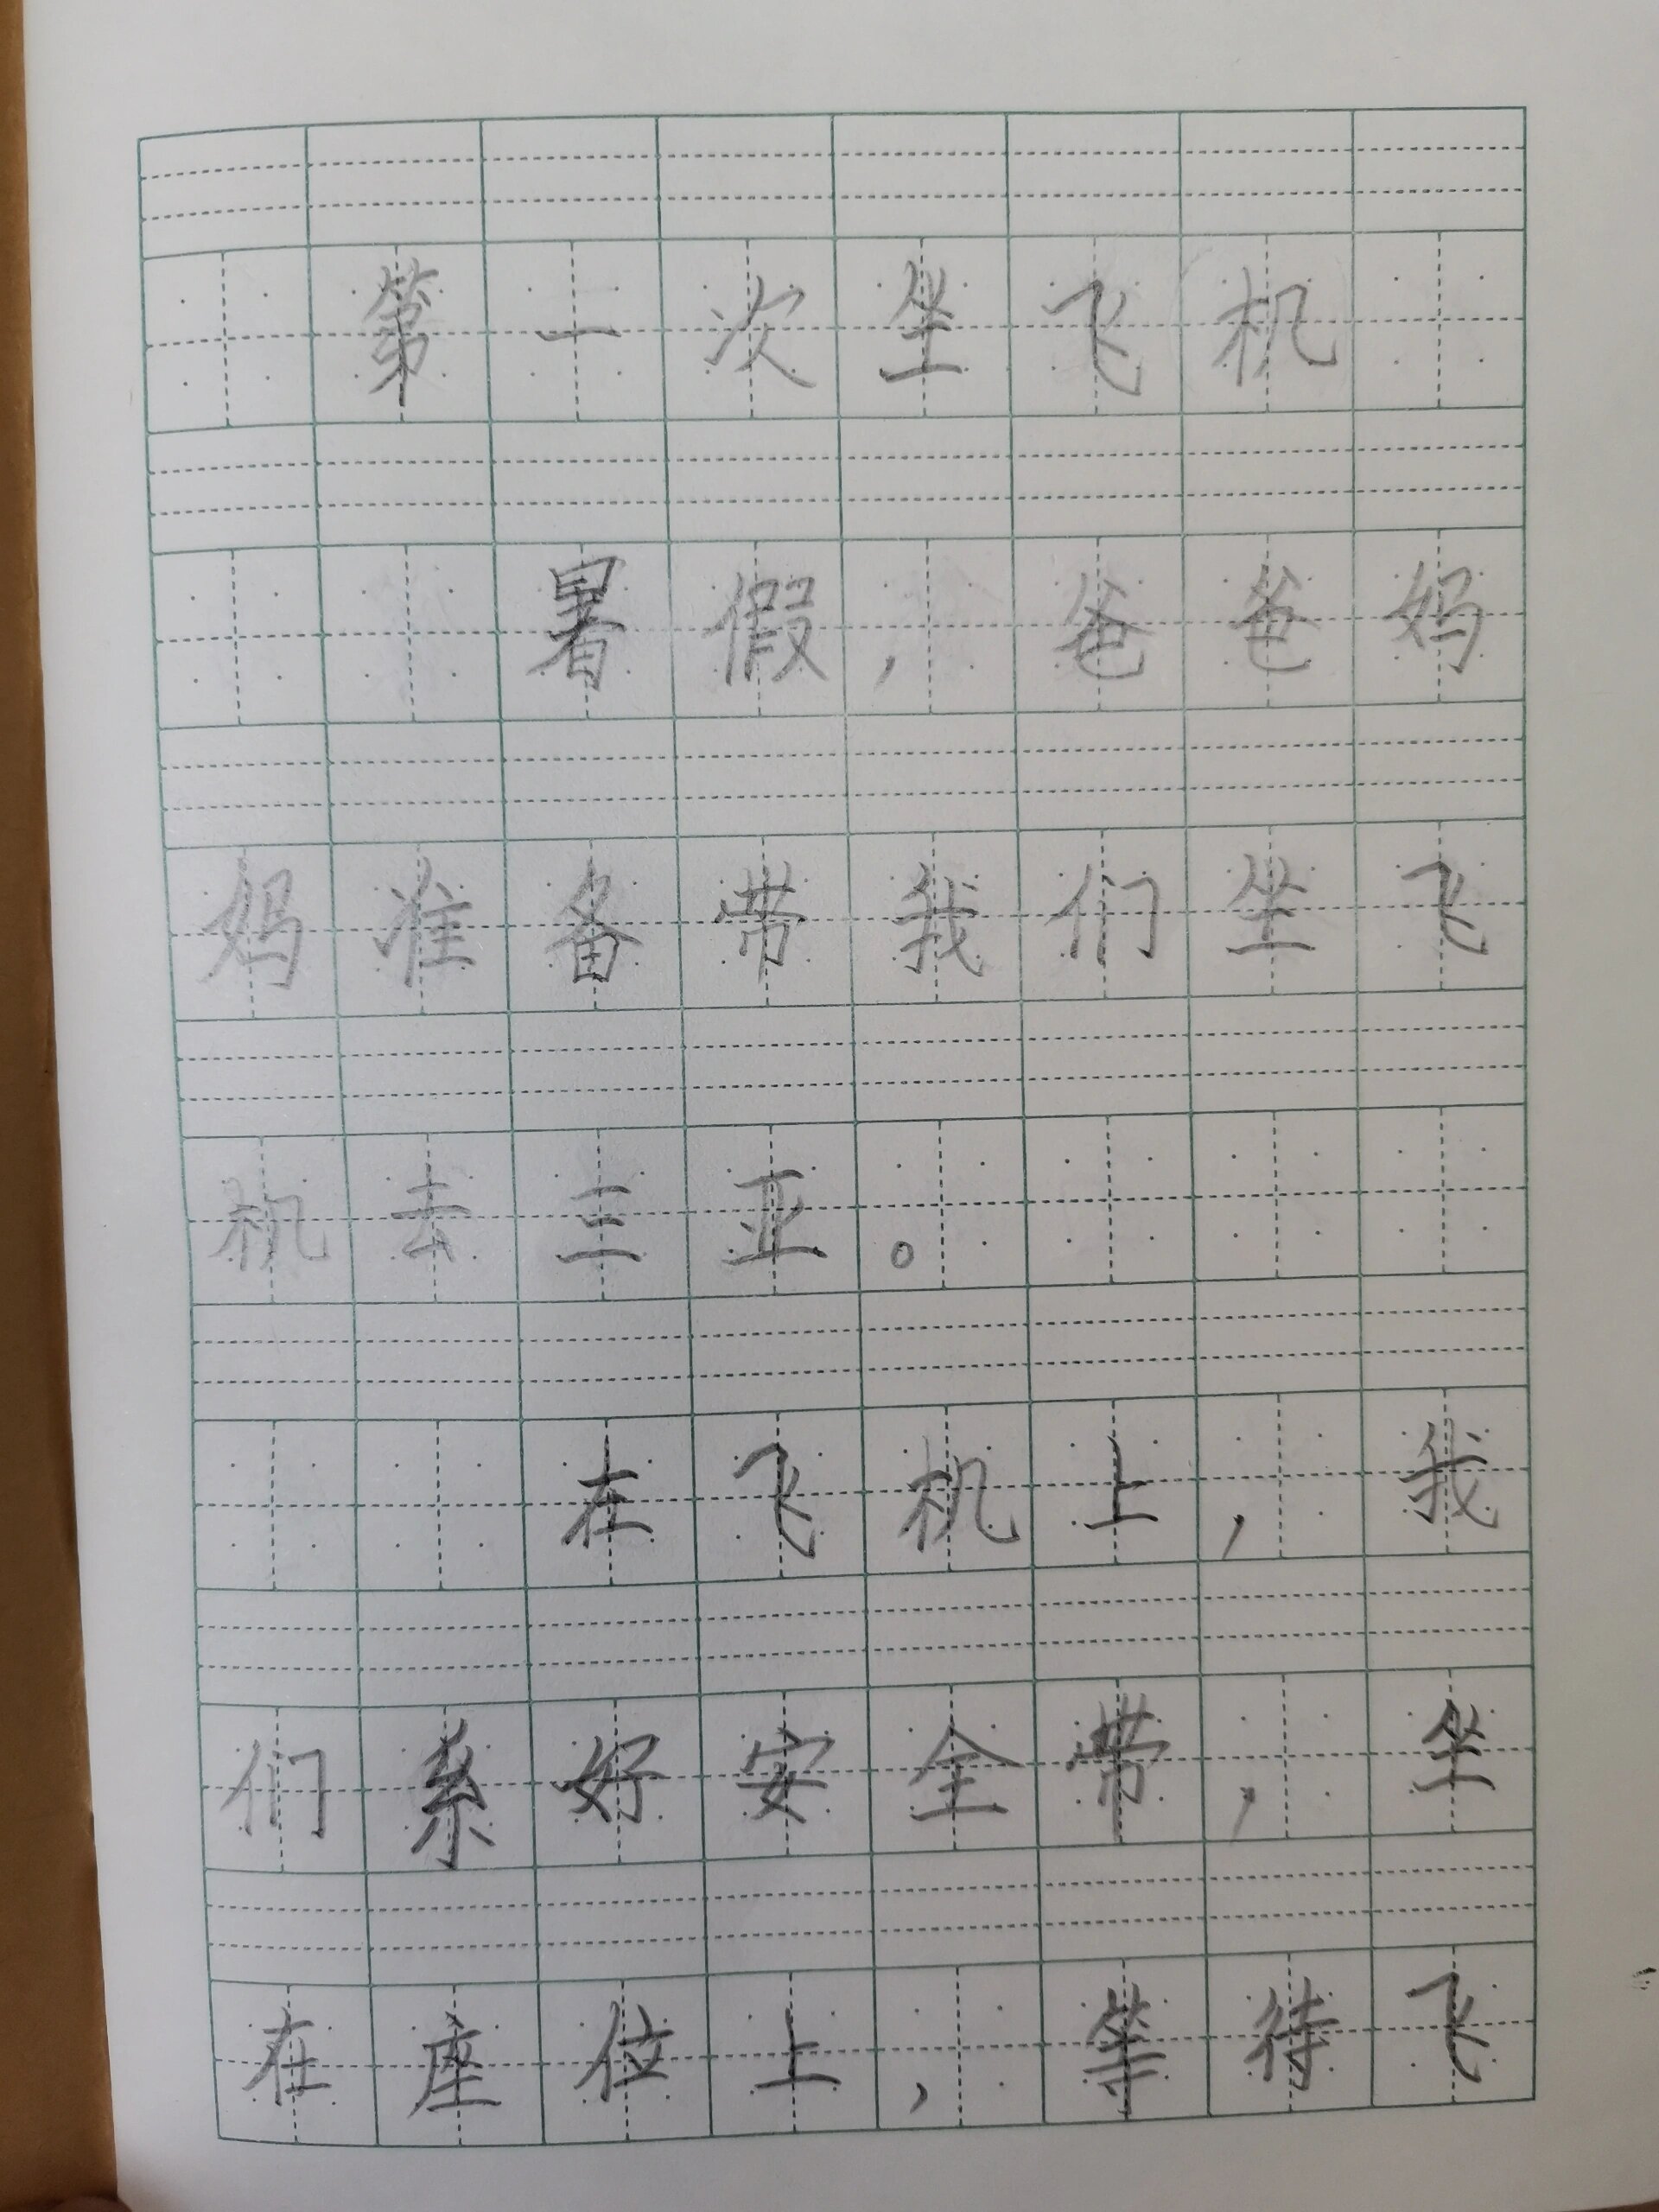 第一次坐飞机
暑假，爸爸妈
妈准备带我们坐飞
机去三亚。
在飞机上，我
们系好安全带，坐
在座位上，等待飞